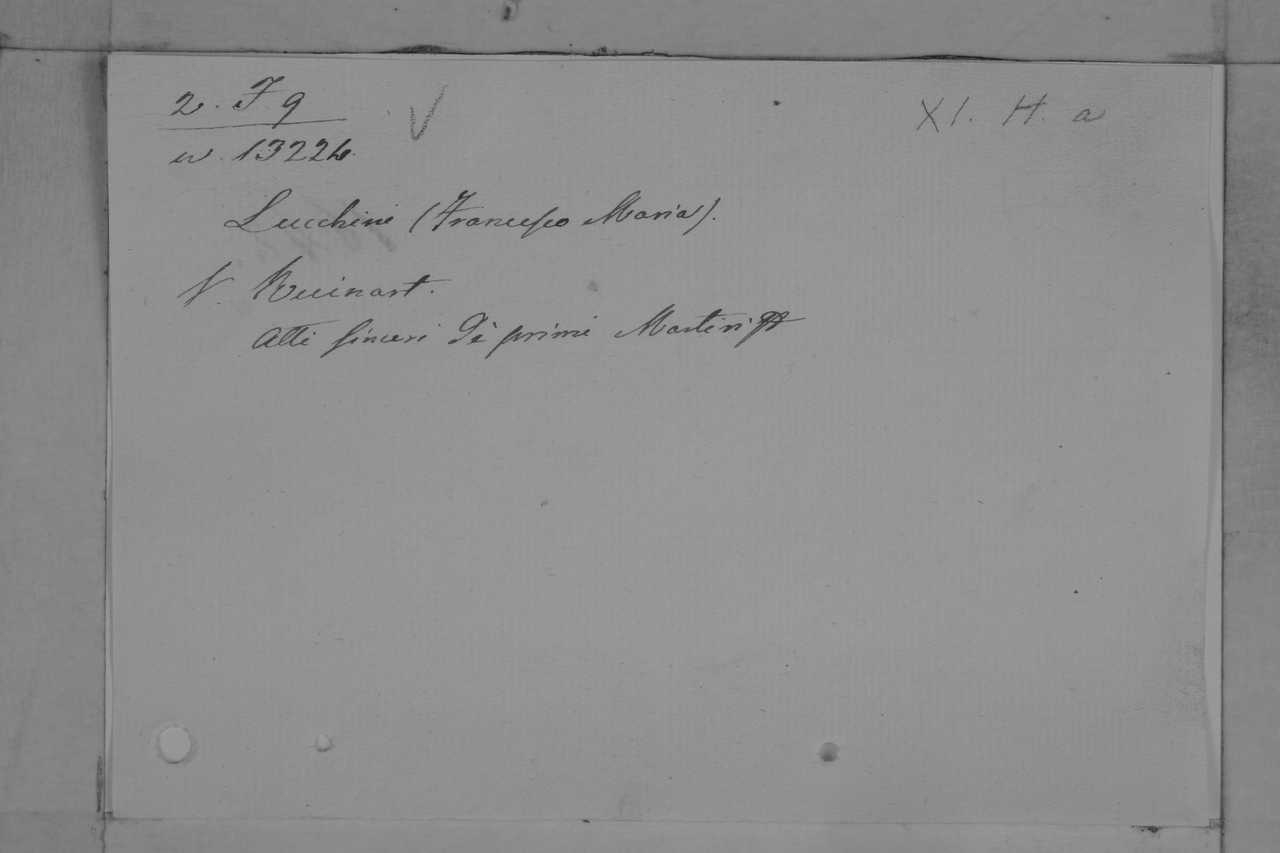 2. F 9
XI. H. a
n. 13224.
Lucchini (Francesco Maria).
V. Ruinart.
Atti sinceri de primi Martiri